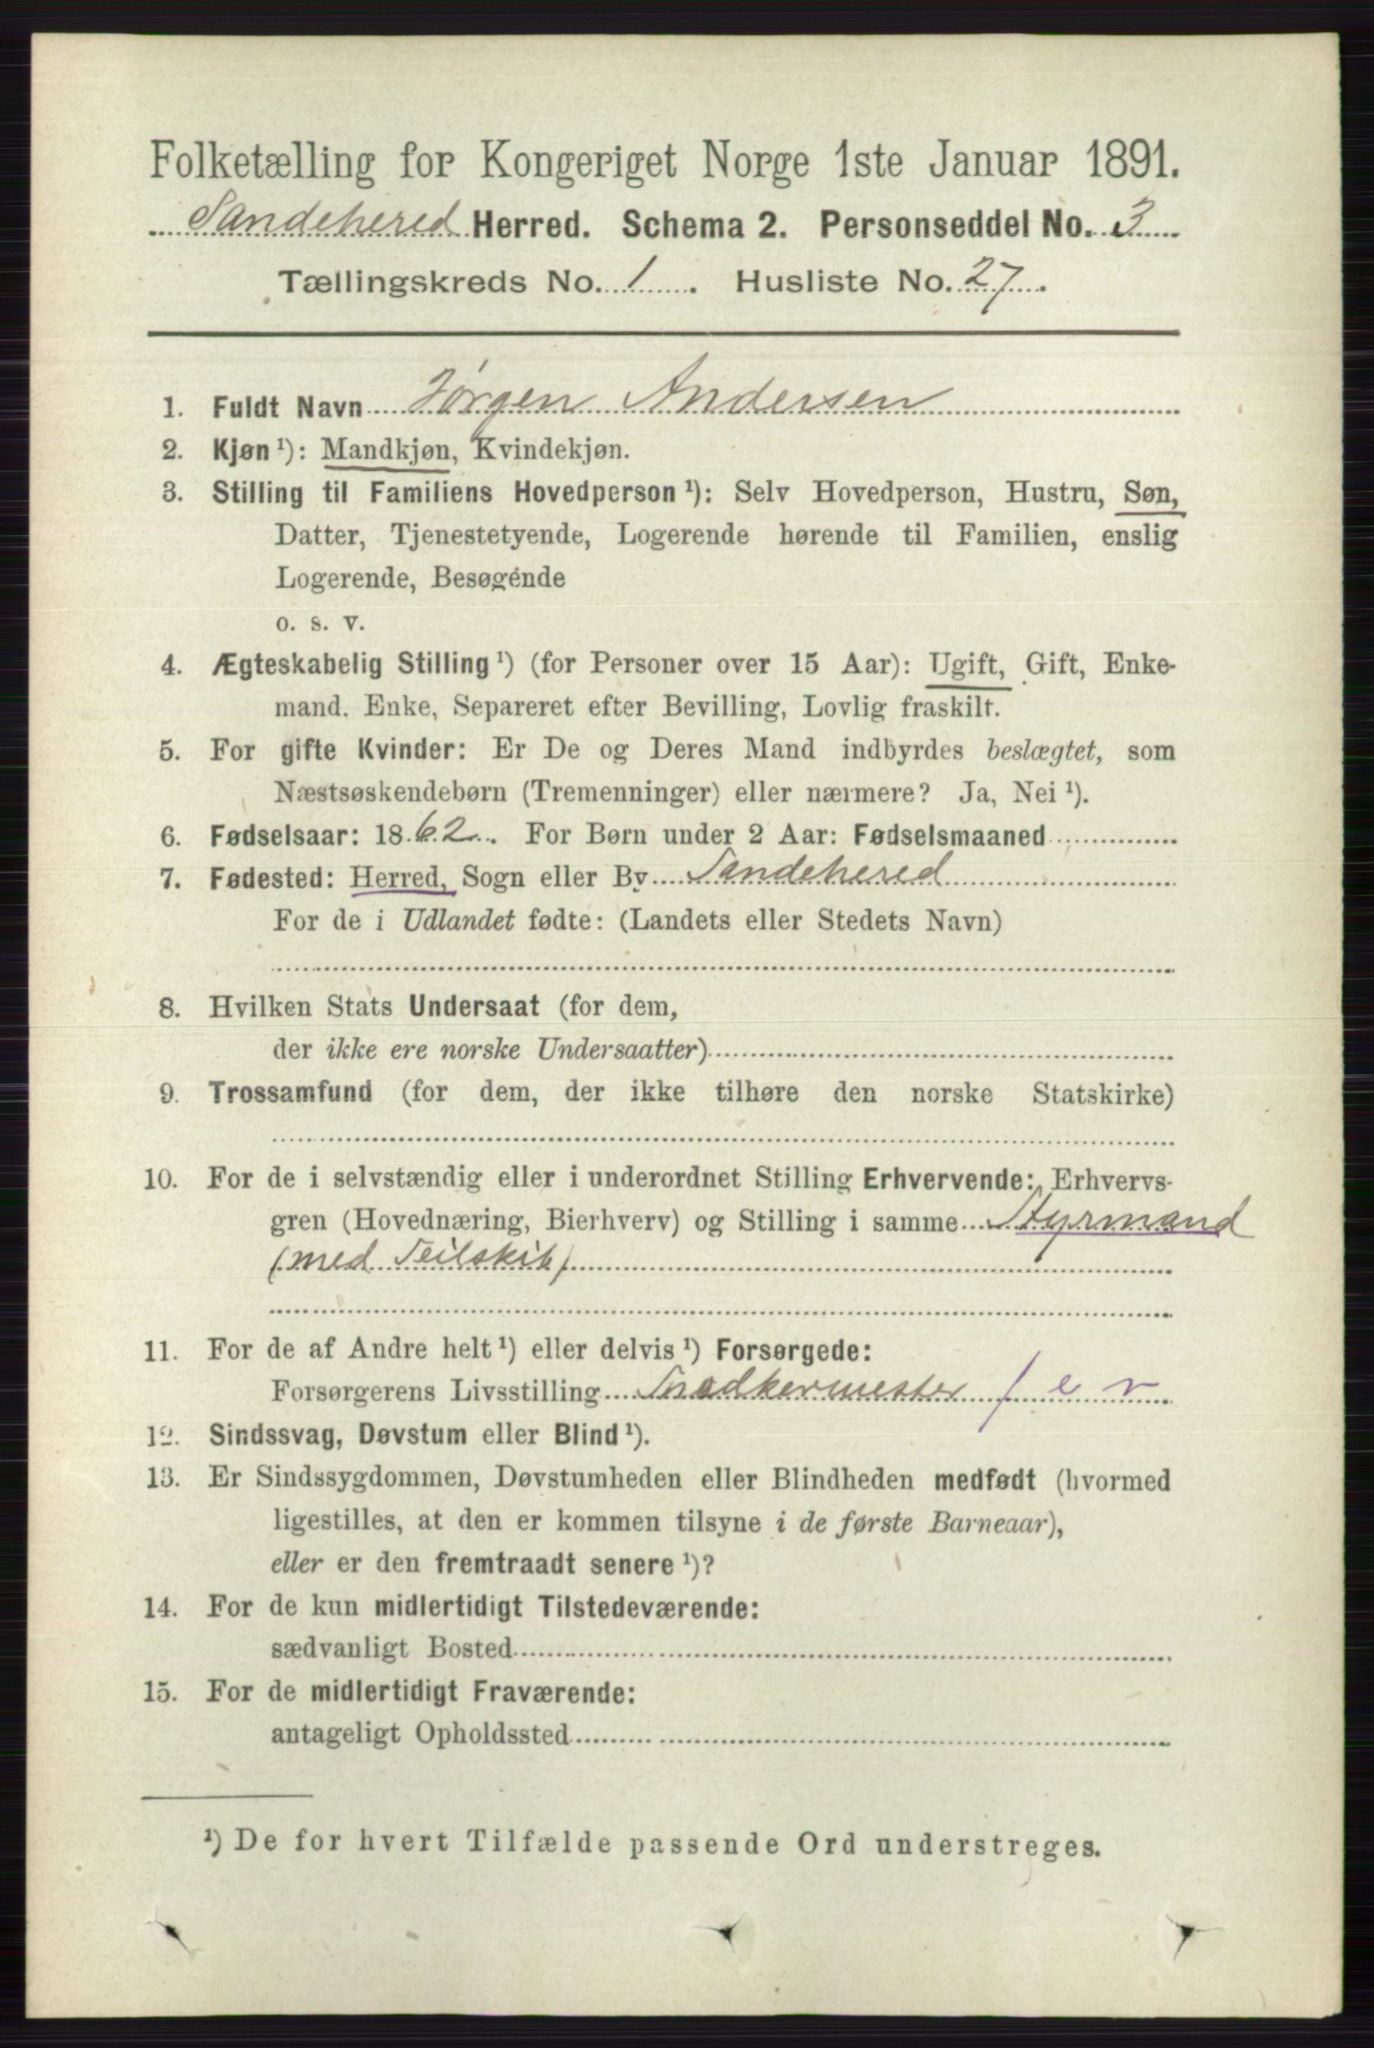 Folketælling for Kongeriget Norge 1ste Januar 1891.
Sandehered Herred. Schema 2. Personseddel No. 3
Tællingskreds No. 1. Husliste No. 27.
1. Fuldt Navn Jørgen Andersen
2. Kjøn ¹): Mandkjøn, Kvindekjøn.
3. Stilling til Familiens Hovedperson ¹): Selv Hovedperson, Hustru, Søn,
Datter, Tjenestetyende, Logerende hørende til Familien, enslig
Logerende, Besøgénde
o. s. v.
4. Ægteskabelig Stilling ¹) (for Personer over 15 Aar): Ugift, Gift, Enke-
mand. Enke, Separeret efter Bevilling, Lovlig fraskilt.
5. For gifte Kvinder: Er De og Deres Mand indbyrdes beslægtet, som
Næstsøskendebørn (Tremenninger) eller nærmere? Ja, Nei ¹).
6. Fødselsaar: 1862. For Børn under 2 Aar: Fødselsmaaned
7. Fødested: Herred, Sogn eller By Sandehered
For de i Udlandet fødte: (Landets eller Stedets Navn)
8. Hvilken Stats Undersaat (for dem,
der ikke ere norske Undersaatter)
9. Trossamfund (for dem, der ikke tilhøre den norske Statskirke)
10. For de i selvstændig eller i underordnet Stilling Erhvervende: Erhvervs-
gren (Hovednæring, Bierhverv) og Stilling i samme Styrmand
(med Seilskib)
11. For de af Andre helt ¹) eller delvis ¹) Forsørgede:
Forsørgerens Livsstilling Snedkermester / e v
12. Sindssvag, Døvstum eller Blind ¹).
13. Er Sindssygdommen, Døvstumheden eller Blindheden medfødt (hvormed
ligestilles, at den er kommen tilsyne i de første Barneaar),
eller er den fremtraadt senere ¹)?
14. For de kun midlertidigt Tilstedeværende:
sædvanligt Bosted
15. For de midlertidigt Fraværende:
antageligt Opholdssted
¹) De for hvert Tilfælde passende Ord understreges.